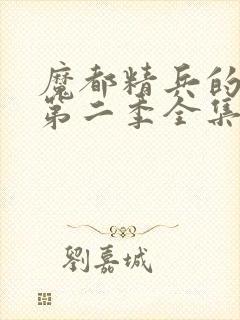 魔都精兵的
第二季全集
劉嘉城